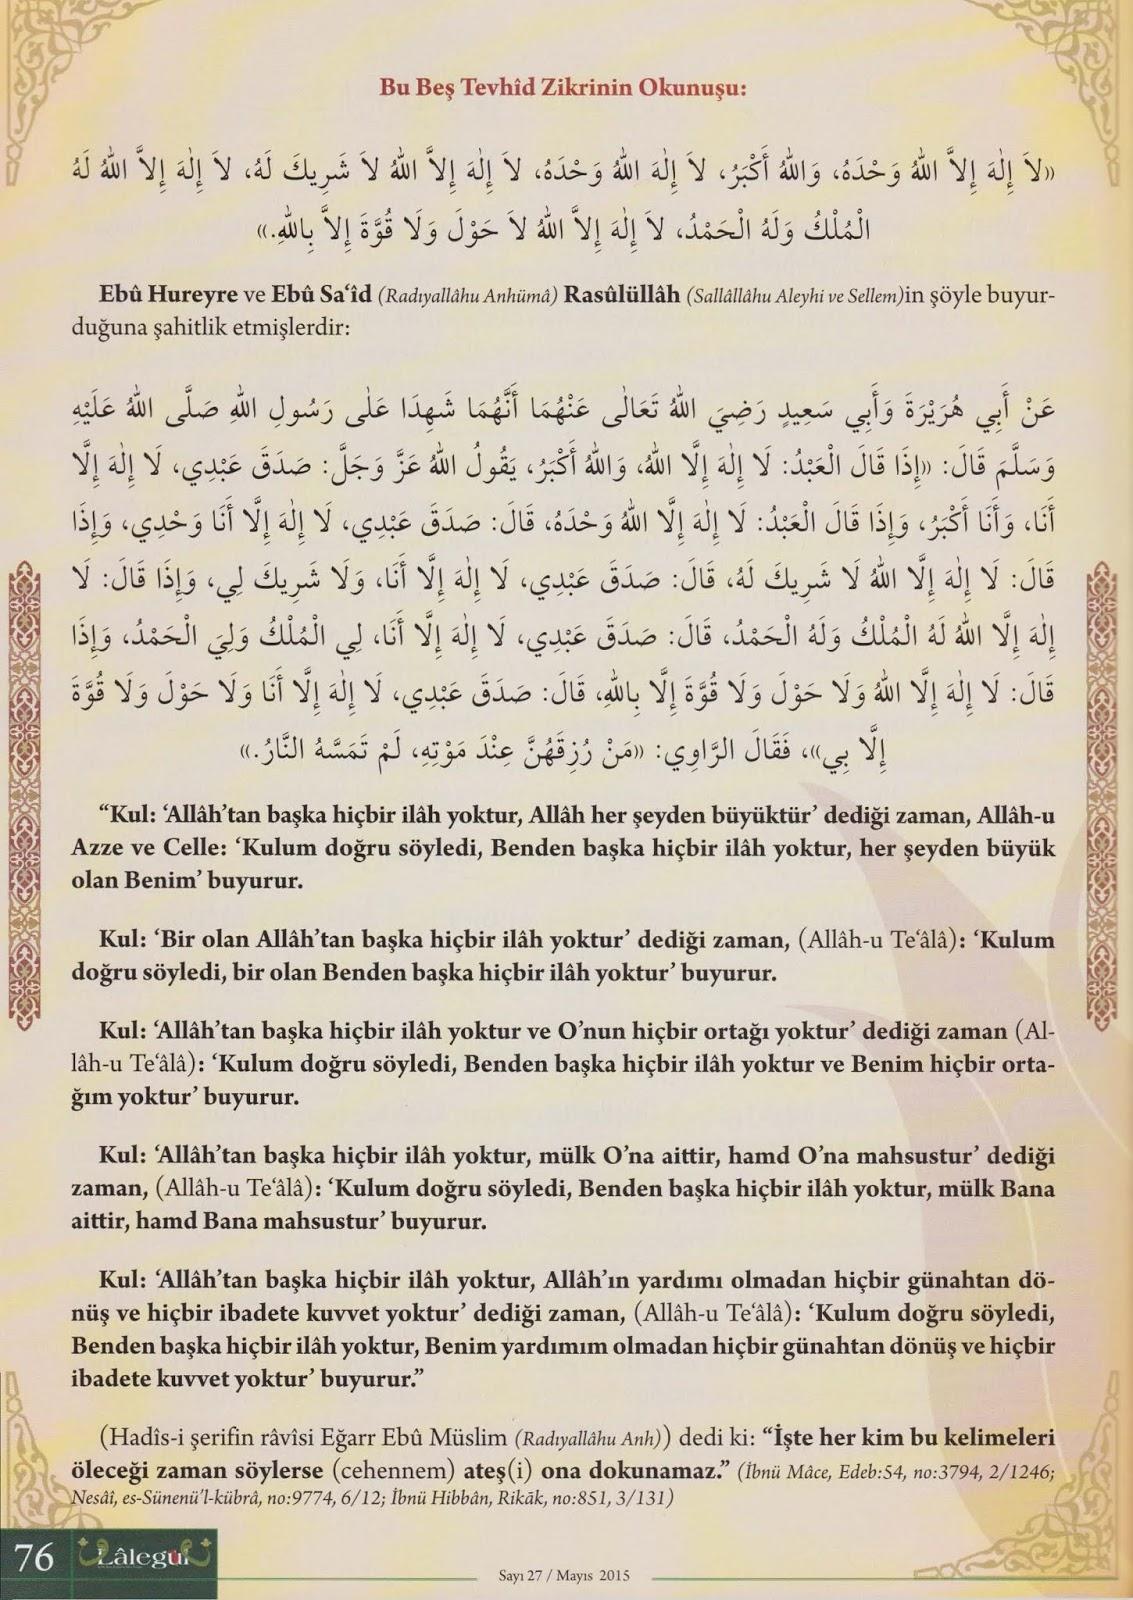 Bu Beş Tevhîd Zikrinin Okunuşu:
«لاَ إِلٰهَ إِلاَّ اللهُ وَحْدَهُ، وَاللهُ أَكْبَرُ، لاَ إِلٰهَ إِلاَّ اللهُ وَحْدَهُ، لاَ إِلٰهَ إِلاَّ اللهُ لاَ شَرِيكَ لَهُ، لاَ إِلٰهَ إِلاَّ اللهُ لَهُ
الْمُلْكُ وَلَهُ الْحَمْدُ، لاَ إِلٰهَ إِلاَّ اللهُ لاَ حَوْلَ وَلَا قُوَّةَ إِلاَّ بِاللهِ.»
Ebû Hureyre ve Ebû Sa‘îd (Radıyallâhu Anhümâ) Rasûlüllâh (Sallâllâhu Aleyhi ve Sellem)in şöyle buyur-
duğuna şahitlik etmişlerdir:
عَنْ أَبِي هُرَيْرَةَ وَأَبِي سَعِيدٍ رَضِيَ اللهُ تَعَالٰى عَنْهُمَا أَنَّهُمَا شَهِدَا عَلٰى رَسُولِ اللهِ صَلَّى اللهُ عَلَيْهِ
وَسَلَّمَ قَالَ: «إِذَا قَالَ الْعَبْدُ: لَا إِلٰهَ إِلَّا اللهُ، وَاللهُ أَكْبَرُ، يَقُولُ اللهُ عَزَّ وَجَلَّ: صَدَقَ عَبْدِي، لَا إِلٰهَ إِلَّا
أَنَا، وَأَنَا أَكْبَرُ، وَإِذَا قَالَ الْعَبْدُ: لَا إِلٰهَ إِلَّا اللهُ وَحْدَهُ، قَالَ: صَدَقَ عَبْدِي، لَا إِلٰهَ إِلَّا أَنَا وَحْدِي، وَإِذَا
قَالَ: لَا إِلٰهَ إِلَّا اللهُ لَا شَرِيكَ لَهُ، قَالَ: صَدَقَ عَبْدِي، لَا إِلٰهَ إِلَّا أَنَا، وَلَا شَرِيكَ لِي، وَإِذَا قَالَ: لَا
إِلٰهَ إِلَّا اللهُ لَهُ الْمُلْكُ وَلَهُ الْحَمْدُ، قَالَ: صَدَقَ عَبْدِي، لَا إِلٰهَ إِلَّا أَنَا، لِي الْمُلْكُ وَلِيَ الْحَمْدُ، وَإِذَا
قَالَ: لَا إِلٰهَ إِلَّا اللهُ وَلَا حَوْلَ وَلَا قُوَّةَ إِلَّا بِاللهِ، قَالَ: صَدَقَ عَبْدِي، لَا إِلٰهَ إِلَّا أَنَا وَلَا حَوْلَ وَلَا قُوَّةَ
إِلَّا بِي»، فَقَالَ الرَّاوِي: «مَنْ رُزِقَهُنَّ عِنْدَ مَوْتِهِ، لَمْ تَمَسَّهُ النَّارُ.»
“Kul: ‘Allâh’tan başka hiçbir ilâh yoktur, Allâh her şeyden büyüktür’ dediği zaman, Allâh-u
Azze ve Celle: ‘Kulum doğru söyledi, Benden başka hiçbir ilâh yoktur, her şeyden büyük
olan Benim’ buyurur.
Kul: ‘Bir olan Allâh’tan başka hiçbir ilâh yoktur’ dediği zaman, (Allâh-u Te‘âlâ): ‘Kulum
doğru söyledi, bir olan Benden başka hiçbir ilâh yoktur’ buyurur.
Kul: ‘Allâh’tan başka hiçbir ilâh yoktur ve O’nun hiçbir ortağı yoktur’ dediği zaman (Al-
lâh-u Te‘âlâ): ‘Kulum doğru söyledi, Benden başka hiçbir ilâh yoktur ve Benim hiçbir orta-
ğım yoktur’ buyurur.
Kul: ‘Allâh’tan başka hiçbir ilâh yoktur, mülk O’na aittir, hamd O’na mahsustur’ dediği
zaman, (Allâh-u Te‘âlâ): ‘Kulum doğru söyledi, Benden başka hiçbir ilâh yoktur, mülk Bana
aittir, hamd Bana mahsustur’ buyurur.
Kul: ‘Allâh’tan başka hiçbir ilâh yoktur, Allâh’ın yardımı olmadan hiçbir günahtan dö-
nüş ve hiçbir ibadete kuvvet yoktur’ dediği zaman, (Allâh-u Te‘âlâ): ‘Kulum doğru söyledi,
Benden başka hiçbir ilâh yoktur, Benim yardımım olmadan hiçbir günahtan dönüş ve hiçbir
ibadete kuvvet yoktur’ buyurur.”
(Hadîs-i şerifin râvîsi Eğarr Ebû Müslim (Radıyallâhu Anh)) dedi ki: “İşte her kim bu kelimeleri
öleceği zaman söylerse (cehennem) ateş(i) ona dokunamaz.” (İbnü Mâce, Edeb:54, no:3794, 2/1246;
Nesâî, es-Sünenü’l-kübrâ, no:9774, 6/12; İbnü Hibbân, Rikāk, no:851, 3/131)
76 Lâlegül
Sayı 27 / Mayıs 2015